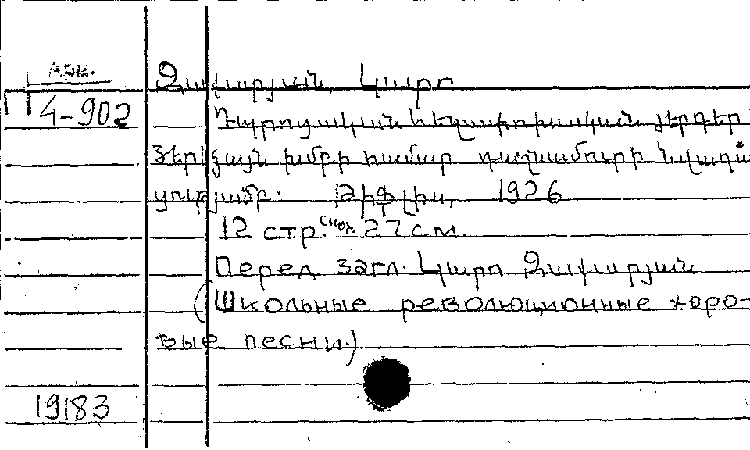 Զաքարյան, Կարո
П 4-902
Դպրոցական հեղափոխական յերգեր
յերկձայն խմբի համար դաշնամուրի նվագակց
ությամբ: Թիֆլիս, 1926
12 стр. 27 см.
Перед загл. Կարո Զաքարյան
(Школьные революционные хоро-
вые песни.)
19183